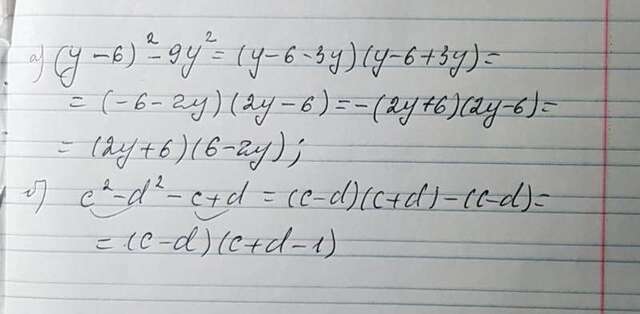 а) (y-6)²-9y² = (y-6-3y)(y-6+3y)=
= (-6-2y)(2y-6)=-(2y+6)(2y-6)=
= (2y+6)(6-2y);
б) c²-d²-c+d = (c-d)(c+d)-(c-d)=
= (c-d)(c+d-1)